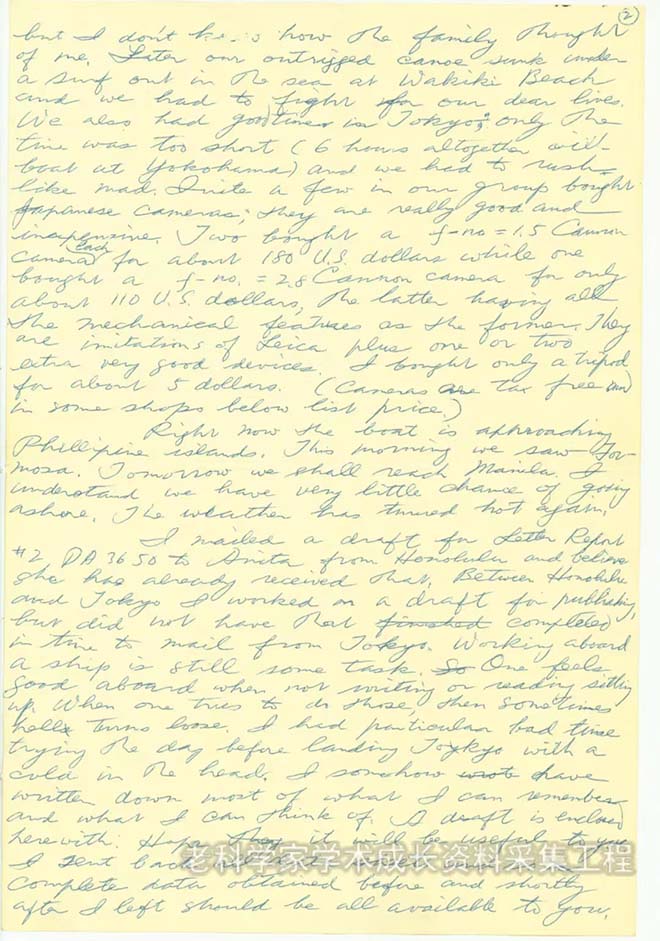 (2)
but I don't know how the family thought
of me. Later our outrigged canoe sunk under
a surf out in the sea at Wakiki Beach
and we had to fight for our dear lives.
We also had good times in Tokyo; only the
time was too short (6 hours altogether with
boat at Yokohama) and we had to rush
like mad. Quite a few in our group bought
Japanese cameras; they are really good and
inexpensive. Two bought a f-no = 1.5 Cannon
camera each for about 180 U.S. dollars while one
bought a f-no. = 2.8 Cannon camera for only
about 110 U.S. dollars, the latter having all
the mechanical features as the former. They
are imitations of Leica plus one or two
extra very good devices. I bought only a tripod
for about 5 dollars. (Cameras are tax free and
in some shops below list price.)
Right now the boat is approaching
Phillipine islands. This morning we saw For-
mosa. Tomorrow we shall reach Manila. I
understand we have very little chance of going
ashore. The weather has turned hot again.
I mailed a draft for Letter Report
#2 DA 3650 to Anita from Honolulu and believe
she has already received that. Between Honolulu
and Tokyo I worked on a draft for publishing,
but did not have that finished completed
in time to mail from Tokyo. Working aboard
a ship is still some task. So One feels
good aboard when not writing or reading sitting
up. When one tries to do those, then sometimes
hells turns loose. I had particular bad time
trying the day before landing Tokyo with a
cold in the head. I somehow wrote have
written down most of what I can remember
and what I can think of. A draft is enclosed
herewith. Hope it will be useful to you
I sent back
complete data obtained before and shortly
after I left should be all available to you.
老科学家学术成长资料采集工程